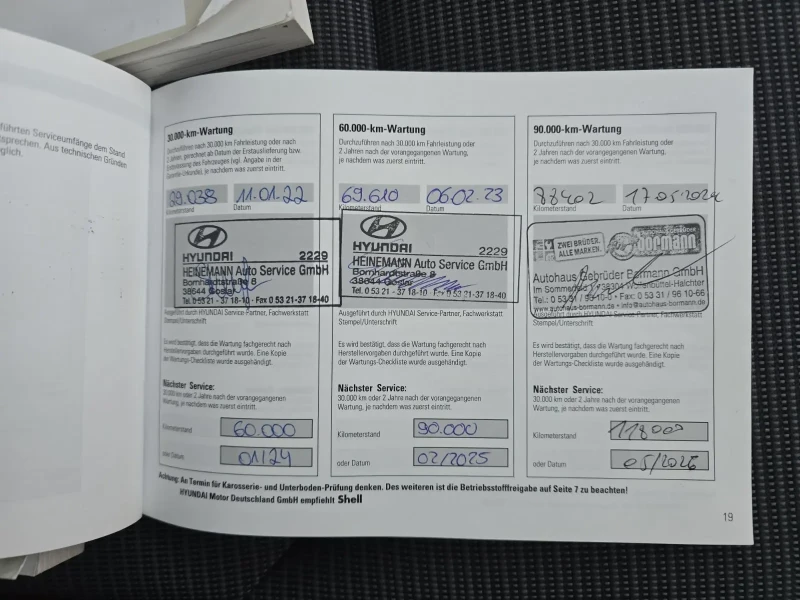 führten Serviceumfänge dem Stand
tsprechen. Aus technischen Gründen
glich.
30.000-km-Wartung
Durchzuführen nach 30.000 km Fahrleistung oder nach
2 Jahren, gerechnet ab Datum der Erstauslieferung bzw.
Erstzulassung des Fahrzeuges (vgl. Angabe in der
Garantie-Urkunde), je nachdem was zuerst eintritt.
29.038 11.01.22
Kilometerstand Datum
HYUNDAI 2229
HEINEMANN Auto Service GmbH
Bornhardtstraße 8
38644 Goslar
Tel. 0 53 21 - 37 18-10 · Fax 0 53 21 - 37 18-40
Ausgeführt durch HYUNDAI Service-Partner, Fachwerkstatt
Stempel/Unterschrift
Es wird bestätigt, dass die Wartung fachgerecht nach
Herstellervorgaben durchgeführt wurde. Eine Kopie
der Wartungs-Checkliste wurde ausgehändigt.
Nächster Service:
30.000 km oder 2 Jahre nach der vorangegangenen
Wartung, je nachdem was zuerst eintritt.
Kilometerstand 60.000
oder Datum 01/24
60.000-km-Wartung
Durchzuführen nach 30.000 km Fahrleistung oder
2 Jahren nach der vorangegangenen Wartung,
je nachdem was zuerst eintritt.
69.610 06.02.23
Kilometerstand Datum
HYUNDAI 2229
HEINEMANN Auto Service GmbH
Bornhardtstraße 8
38644 Goslar
Tel. 0 53 21 - 37 18-10 · Fax 0 53 21 - 37 18-40
Ausgeführt durch HYUNDAI Service-Partner, Fachwerkstatt
Stempel/Unterschrift
Es wird bestätigt, dass die Wartung fachgerecht nach
Herstellervorgaben durchgeführt wurde. Eine Kopie
der Wartungs-Checkliste wurde ausgehändigt.
Nächster Service:
30.000 km oder 2 Jahre nach der vorangegangenen
Wartung, je nachdem was zuerst eintritt.
Kilometerstand 90.000
oder Datum 02/2025
90.000-km-Wartung
Durchzuführen nach 30.000 km Fahrleistung oder
2 Jahren nach der vorangegangenen Wartung,
je nachdem was zuerst eintritt.
88402 17.05.2024
Kilometerstand Datum
ZWEI BRÜDER.
ALLE MARKEN.
AUTOHAUS GEBRÜDER
bormann
Autohaus Gebrüder Bormann GmbH
Im Sommerfeld 38304 Wolfenbüttel-Halchter
Tel.: 0 53 31 / 96 10-0 • Fax: 0 53 31 / 96 10-66
www.autohaus-bormann.de • info@autohaus-bormann.de
Ausgeführt durch HYUNDAI Service-Partner, Fachwerkstatt
Stempel/Unterschrift
Es wird bestätigt, dass die Wartung fachgerecht nach
Herstellervorgaben durchgeführt wurde. Eine Kopie
der Wartungs-Checkliste wurde ausgehändigt.
Nächster Service:
30.000 km oder 2 Jahre nach der vorangegangenen
Wartung, je nachdem was zuerst eintritt.
Kilometerstand 118000
oder Datum 05/2026
Achtung: An Termin für Karosserie- und Unterboden-Prüfung denken. Des weiteren ist die Betriebsstofffreigabe auf Seite 7 zu beachten!
HYUNDAI Motor Deutschland GmbH empfiehlt Shell
19